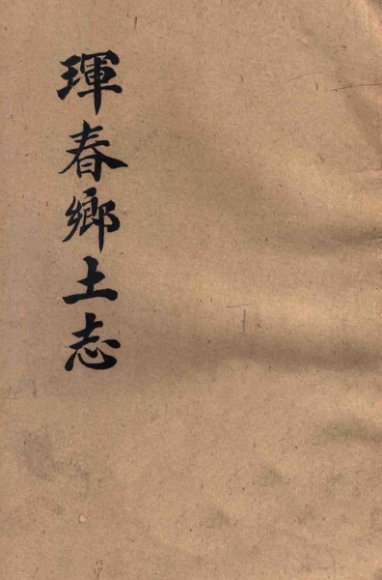 琿春鄉土志